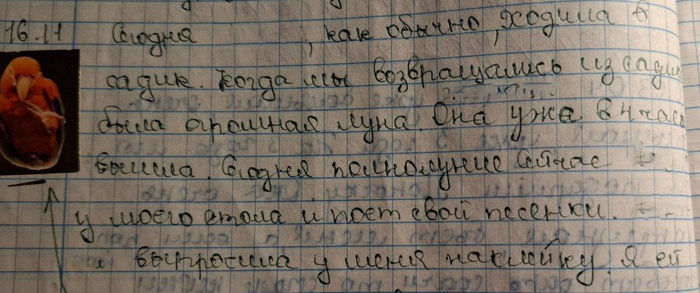 16.11 Сегодня , как обычно, ходила в
садик. Когда мы возвращались из садик
была огромная луна. Она уже в 4 часа
вышла. Сегодня полнолуние Сейчас
у моего стола и поет свои песенки.
выпросила у меня наклейку. Я ей